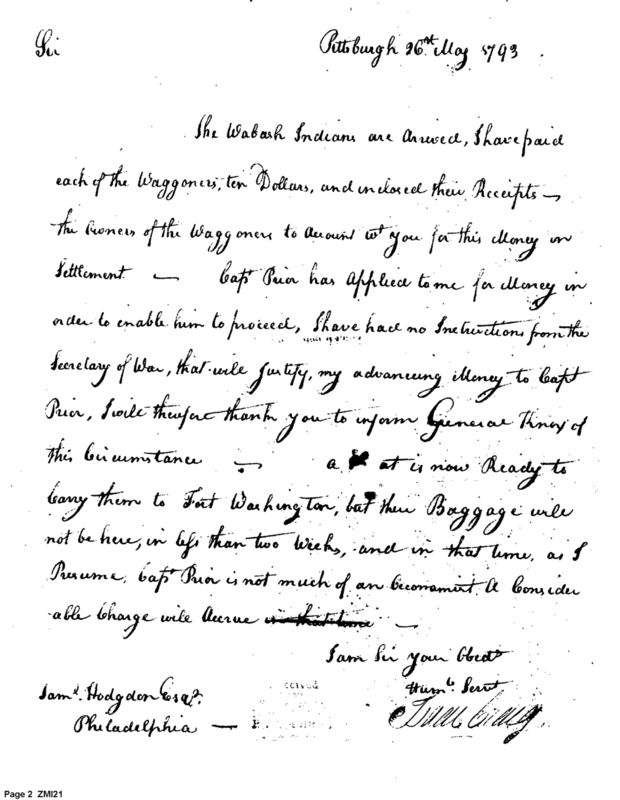 Sir
Pittsburgh 26th May 1793
The Wabash Indians are Arrived, I have paid
each of the Waggoners, ten Dollars, and inclosed their Receipts —
the Owners of the Waggoners to Account wt you for this Money in
Settlement — Capt Prior has Applied to me for Money in
order to enable him to proceed, I have had no Instructions from the
Secretary of War, that will Justify, my advancing Money to Capt
Prior, I will therefore thank you to inform General Knox of
this Circumstance — a at is now Ready to
Carry them to Fort Washington, but their Baggage will
not be here, in less than two Weeks, and in that time, as I
Presume, Capt Prior is not much of an Oeconomist. A Consider
able Charge will Accrue in that time —
I am Sir your Obedt
Humle Servt
Isaac Craig
Saml. Hodgdon Esqr.
Philadelphia —
Page 2 ZMI21